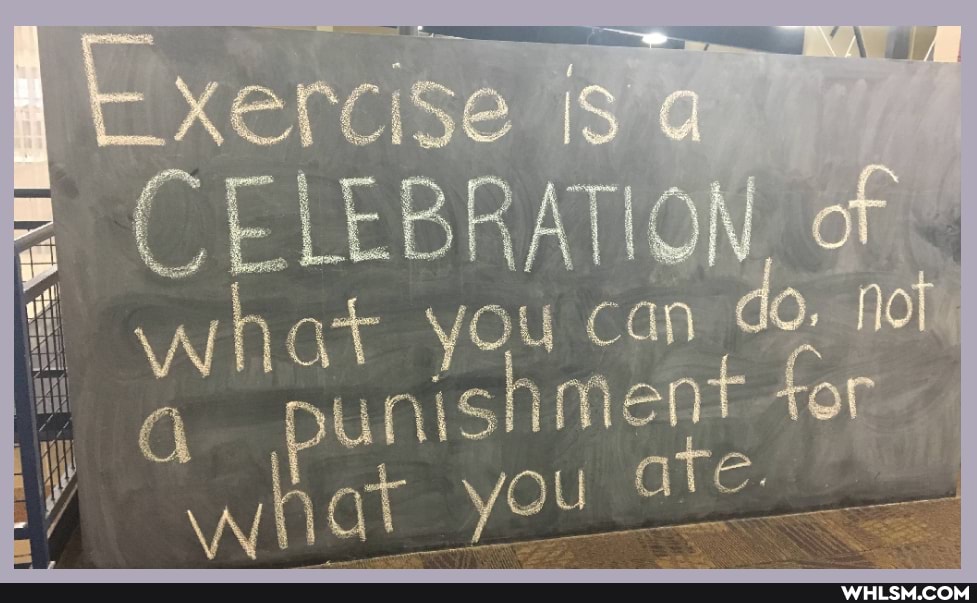 Exercise is a
CELEBRATION of
what you can do, not
a punishment for
what you ate.
WHLSM.COM